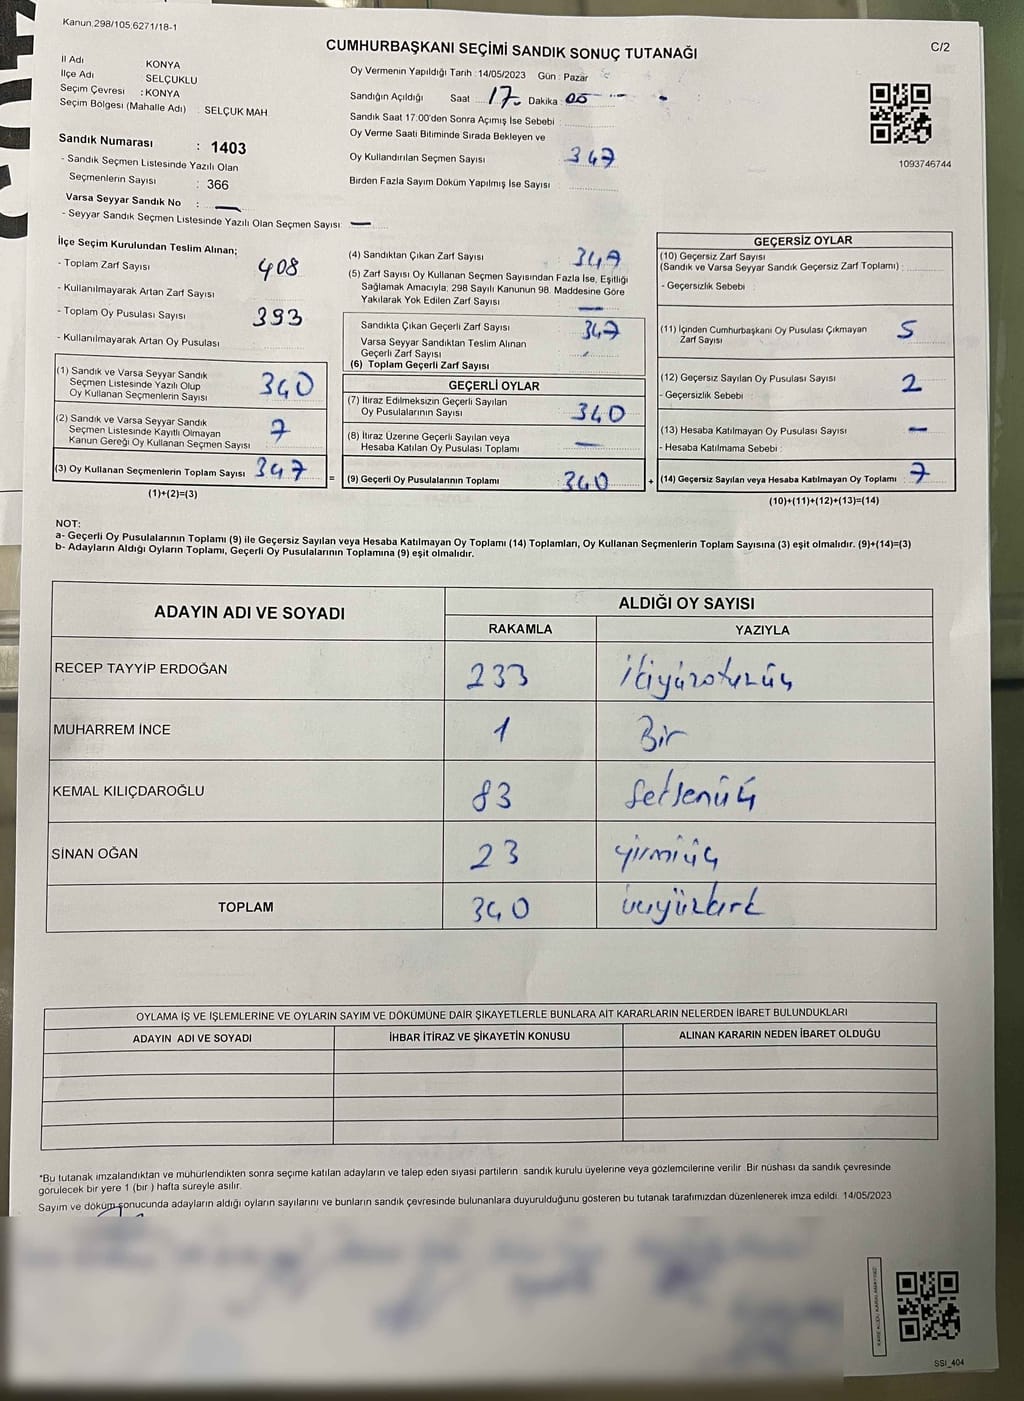 Kanun.298/105,6271/18-1
CUMHURBAŞKANI SEÇİMİ SANDIK SONUÇ TUTANAĞI
C/2
İl Adı KONYA
İlçe Adı SELÇUKLU
Seçim Çevresi : KONYA
Seçim Bölgesi (Mahalle Adı) : SELÇUK MAH
Oy Vermenin Yapıldığı Tarih :14/05/2023 Gün : Pazar
Sandığın Açıldığı Saat 17 Dakika 05
Sandık Saat 17:00'den Sonra Açımış İse Sebebi
Oy Verme Saati Bitiminde Sırada Bekleyen ve
Oy Kullandırılan Seçmen Sayısı 347
Birden Fazla Sayım Döküm Yapılmış İse Sayısı
1093746744
Sandık Numarası : 1403
- Sandık Seçmen Listesinde Yazılı Olan
Seçmenlerin Sayısı : 366
Varsa Seyyar Sandık No : —
- Seyyar Sandık Seçmen Listesinde Yazılı Olan Seçmen Sayısı: —
İlçe Seçim Kurulundan Teslim Alınan;
- Toplam Zarf Sayısı 408
- Kullanılmayarak Artan Zarf Sayısı
- Toplam Oy Pusulası Sayısı 393
- Kullanılmayarak Artan Oy Pusulası
(1) Sandık ve Varsa Seyyar Sandık
Seçmen Listesinde Yazılı Olup
Oy Kullanan Seçmenlerin Sayısı 340
(2) Sandık ve Varsa Seyyar Sandık
Seçmen Listesinde Kayıtlı Olmayan
Kanun Gereği Oy Kullanan Seçmen Sayısı 7
(3) Oy Kullanan Seçmenlerin Toplam Sayısı 347
(1)+(2)=(3)
(4) Sandıktan Çıkan Zarf Sayısı 347
(5) Zarf Sayısı Oy Kullanan Seçmen Sayısından Fazla İse, Eşitliği
Sağlamak Amacıyla; 298 Sayılı Kanunun 98. Maddesine Göre
Yakılarak Yok Edilen Zarf Sayısı —
Sandıkta Çıkan Geçerli Zarf Sayısı 347
Varsa Seyyar Sandıktan Teslim Alınan
Geçerli Zarf Sayısı
(6) Toplam Geçerli Zarf Sayısı
GEÇERLİ OYLAR
(7) İtiraz Edilmeksizin Geçerli Sayılan
Oy Pusulalarının Sayısı 340
(8) İtiraz Üzerine Geçerli Sayılan veya
Hesaba Katılan Oy Pusulası Toplamı —
= (9) Geçerli Oy Pusulalarının Toplamı 340
GEÇERSİZ OYLAR
(10) Geçersiz Zarf Sayısı
(Sandık ve Varsa Seyyar Sandık Geçersiz Zarf Toplamı) :
- Geçersizlik Sebebi :
(11) İçinden Cumhurbaşkanı Oy Pusulası Çıkmayan
Zarf Sayısı 5
(12) Geçersiz Sayılan Oy Pusulası Sayısı 2
- Geçersizlik Sebebi
(13) Hesaba Katılmayan Oy Pusulası Sayısı —
- Hesaba Katılmama Sebebi :
+ (14) Geçersiz Sayılan veya Hesaba Katılmayan Oy Toplamı : 7
(10)+(11)+(12)+(13)=(14)
NOT:
a- Geçerli Oy Pusulalarının Toplamı (9) ile Geçersiz Sayılan veya Hesaba Katılmayan Oy Toplamı (14) Toplamları, Oy Kullanan Seçmenlerin Toplam Sayısına (3) eşit olmalıdır. (9)+(14)=(3)
b- Adayların Aldığı Oyların Toplamı, Geçerli Oy Pusulalarının Toplamına (9) eşit olmalıdır.
ADAYIN ADI VE SOYADI ALDIĞI OY SAYISI
RAKAMLA YAZIYLA
RECEP TAYYİP ERDOĞAN 233 ikiyüzotuzüç
MUHARREM İNCE 1 Bir
KEMAL KILIÇDAROĞLU 83 Seksenüç
SİNAN OĞAN 23 yirmiüç
TOPLAM 340 üçyüzkırk
OYLAMA İŞ VE İŞLEMLERİNE VE OYLARIN SAYIM VE DÖKÜMÜNE DAİR ŞİKAYETLERLE BUNLARA AİT KARARLARIN NELERDEN İBARET BULUNDUKLARI
ADAYIN ADI VE SOYADI İHBAR İTİRAZ VE ŞİKAYETİN KONUSU ALINAN KARARIN NEDEN İBARET OLDUĞU
*Bu tutanak imzalandıktan ve mühürlendikten sonra seçime katılan adayların ve talep eden siyasi partilerin sandık kurulu üyelerine veya gözlemcilerine verilir. Bir nüshası da sandık çevresinde
görülecek bir yere 1 (bir ) hafta süreyle asılır.
Sayım ve döküm sonucunda adayların aldığı oyların sayılarını ve bunların sandık çevresinde bulunanlara duyurulduğunu gösteren bu tutanak tarafımızdan düzenlenerek imza edildi. 14/05/2023
SSI_404